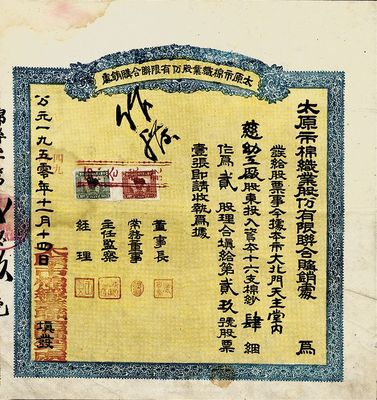 太原市棉織業股份有限聯合購銷處
太原市棉織業股份有限聯合購銷處 為
發給股票事今據本市大北門天主堂內
慈幼工廠股東投入資本十六支棉紗肆綑
作為貳股理合填給第貳玖號股票
壹張即請收執為據
董事長
常務董事
主任監察
經理
公元一九五零年十一月十四日 填發
作廢